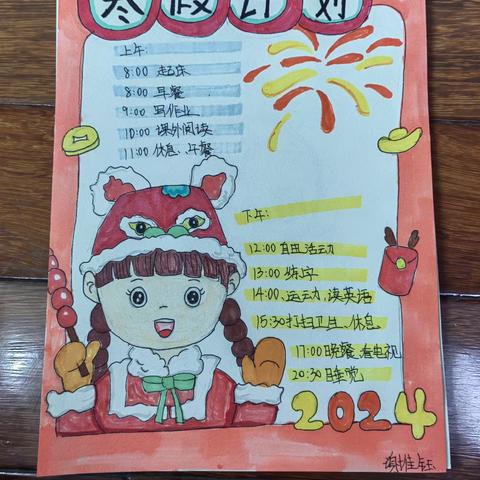 寒假计划
上午:
8:00 起床
8:00 早餐
9:00 写作业
10:00 课外阅读
11:00 休息、午餐
下午:
12:00 自由活动
13:00 练字
14:00、运动、读英语
15:30打扫卫生、休息
17:00晚餐、看电视
20:30睡觉
2024